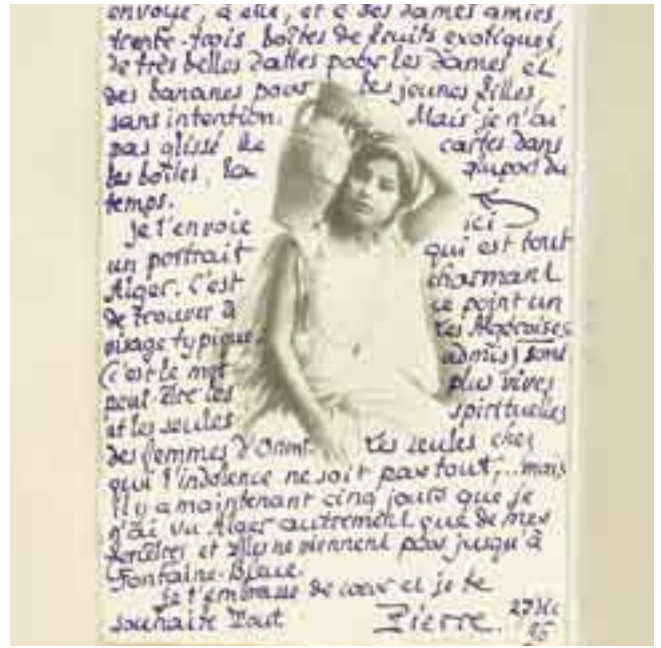 envoyé, à elle, et à ses dames amies,
trente-trois boîtes de fruits exotiques,
de très belles dattes pour les dames et
des bananes pour les jeunes filles
sans intention. Mais je n'ai
pas glissé de cartes dans
les boîtes, la plupart du
temps.
je t'envoie ici
un portrait qui est tout
Alger. C'est charmant
de trouver à ce point un
visage typique. Les Algéroises
(c'est le mot admis) sont
peut être les plus vives
et les seules spirituelles
des femmes d'Orient. Les seules chez
qui l'indolence ne soit pas tout,... mais
il y a maintenant cinq jours que je
n'ai vu Alger autrement que de mes
fenêtres et elles ne viennent pas jusqu'à
Fontaine-Bleue.
Je t'embrasse de cœur et je te
souhaite Tout Pierre. 27